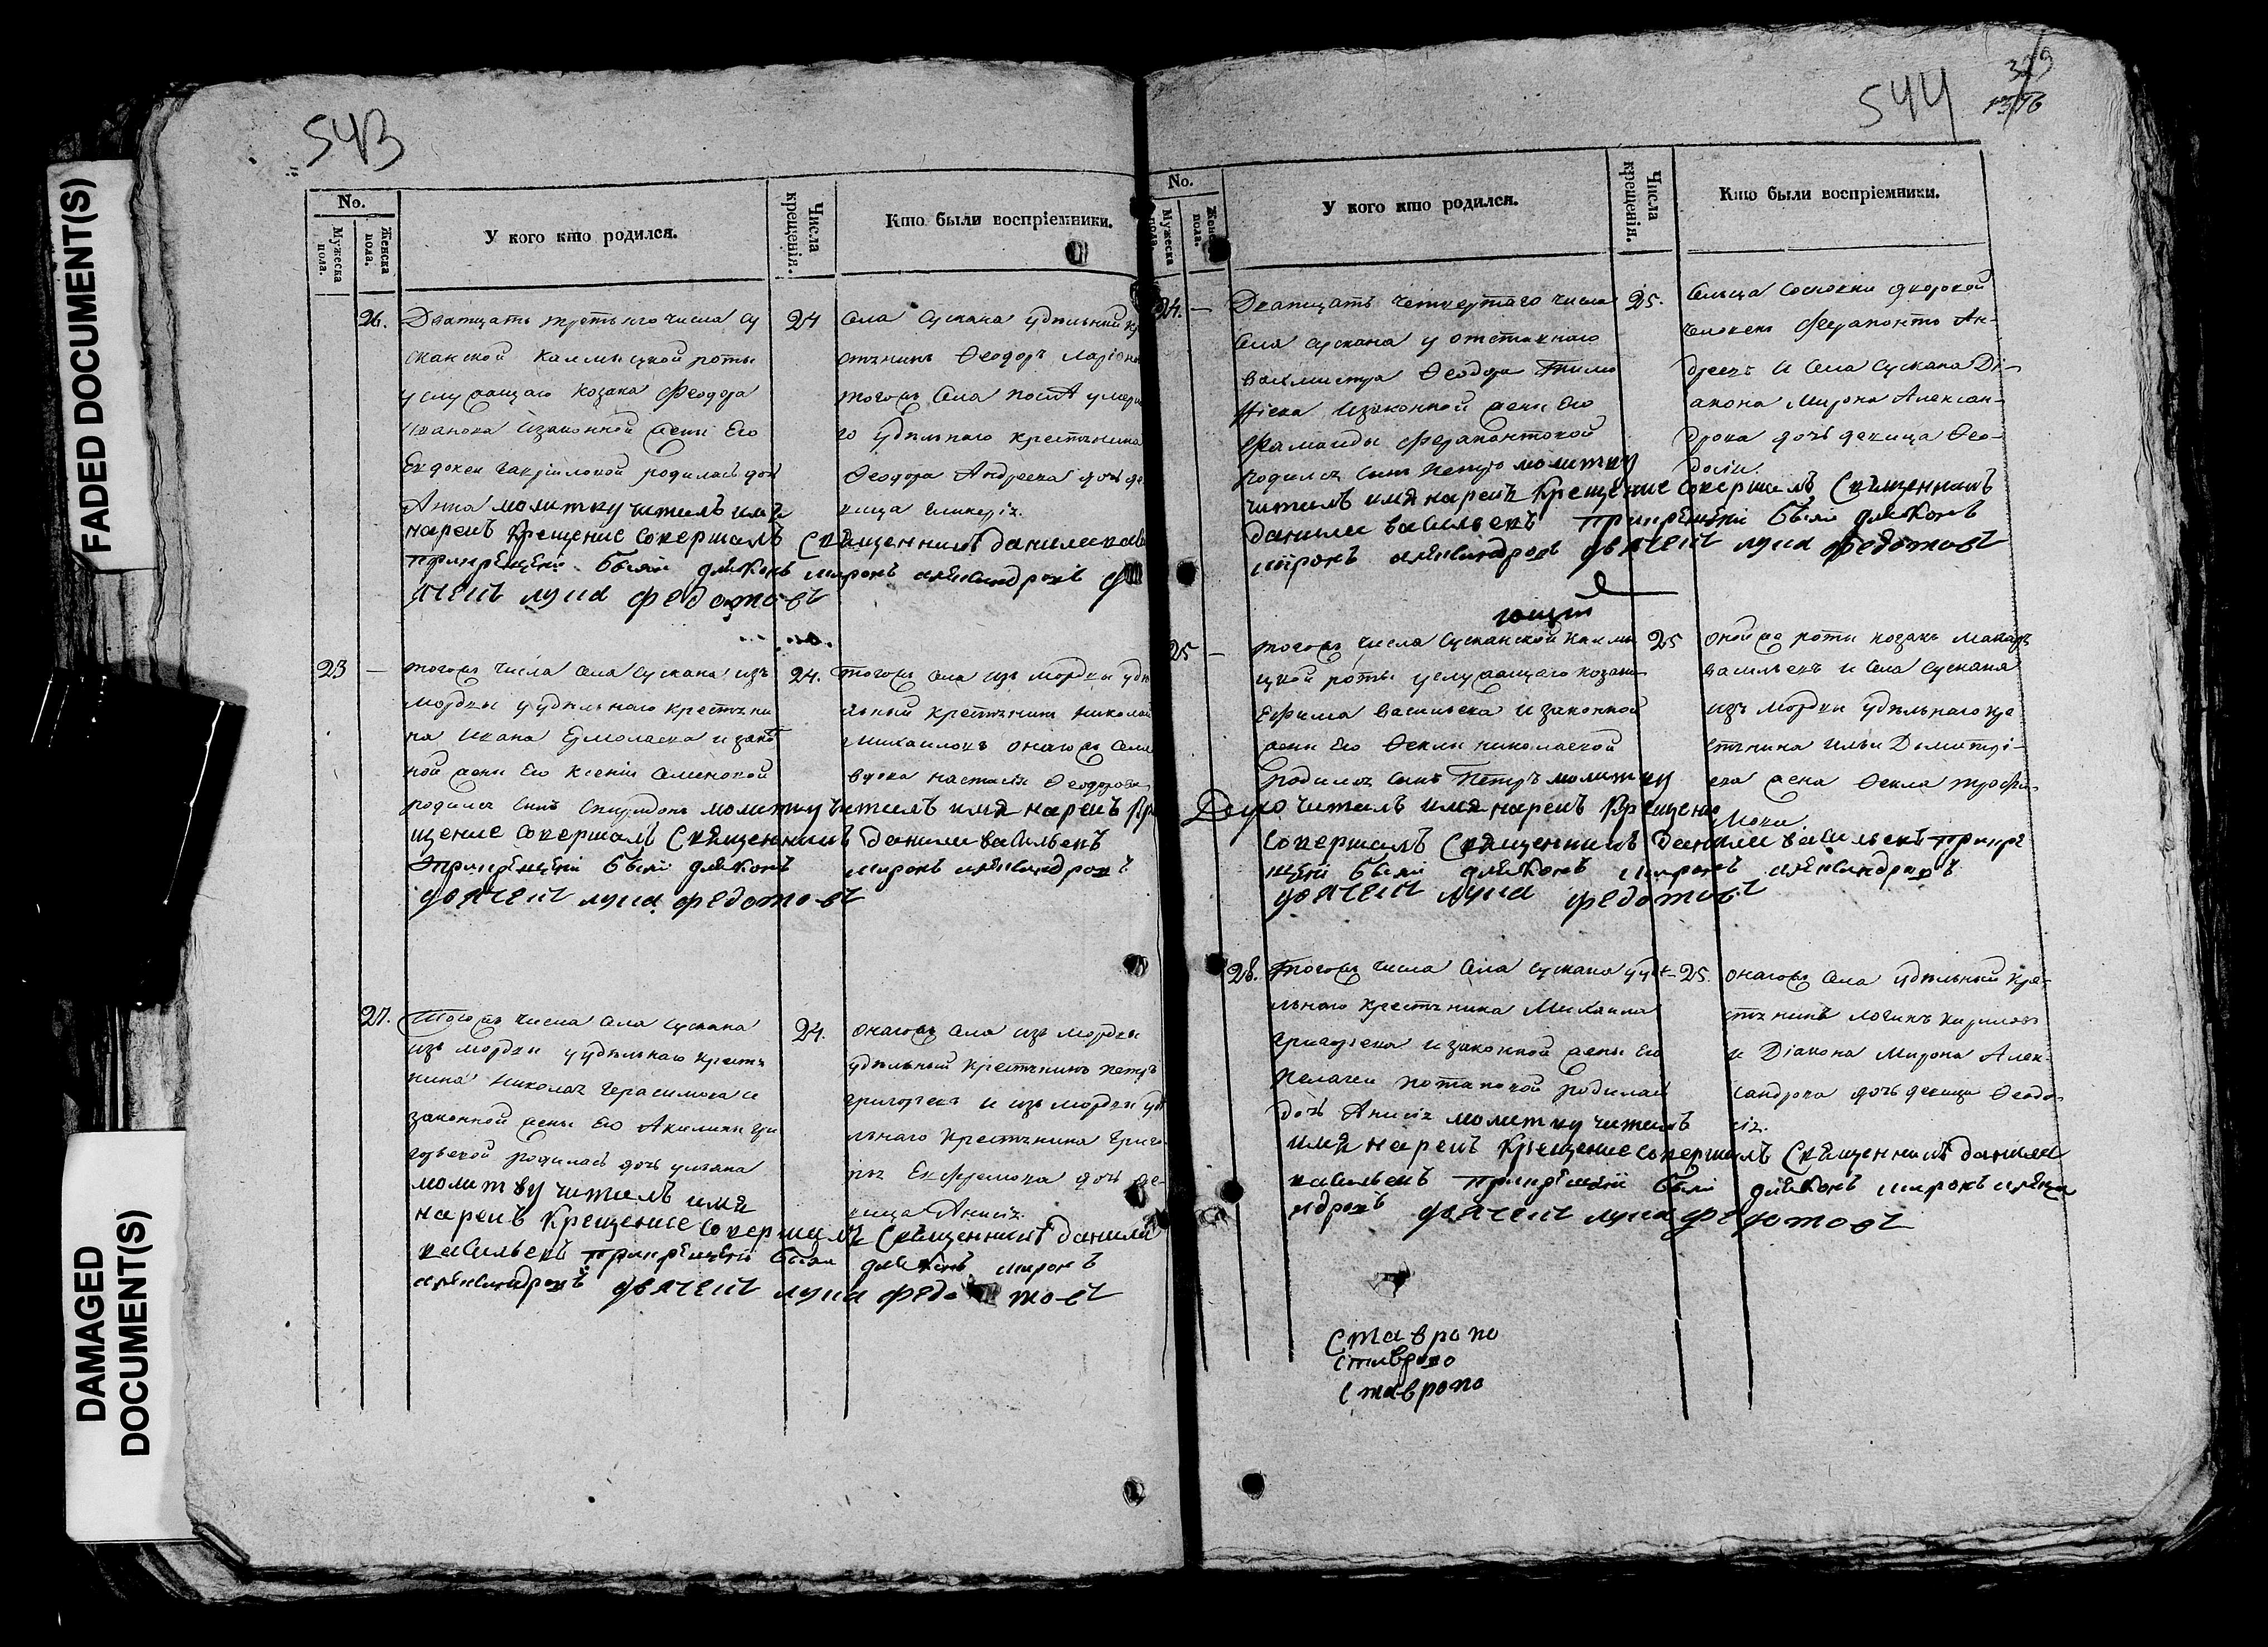 FADED DOCUMENT(S)
DAMAGED
DOCUMENT(S)
543
No.
Мужеска пола.
Женска пола.
У кого кто родился.
Числа крещенія.
Кто были воспріемники.
26.
Дватцать третьяго числа Су
сканской Калмыцкой роты
у служащаго козака Феодора
Иванова изаконной жены Его
Евдокеи Гавриловой родилась дочь
Анна молитву читалъ имя
нарекъ Крещение совершалъ Священникъ данила
прикрещеніи были диаконъ миронъ александровъ
дьячекъ лука федотовъ
24
Села Сускана удѣльный
стьянинъ Ѳеодоръ
тогожъ Села послѣ
го удѣльнаго крестьянина
Ѳеодора Андреева дочь де
вица Гликерія.
23
—
тогожъ числа Села Сускана изъ
мордвы у удѣльнаго крестьяни
на Ивана Ермолаева и закон
ной жены Его Ксеніи Семеновой
родился Сынъ Спиридонъ молитву читалъ имя нарекъ Кре
щение совершалъ Священникъ данила васильевъ
прикрещеніи были диаконъ миронъ александровъ
дьячекъ лука федотовъ
24.
тогожъ Села изъ мордвы удѣ
льный крестьянинъ Николай
Михаиловъ онагожъ Села
вдова настасія Ѳеодорова
27.
Тогожъ числа Села Сускана
изъ мордвы у удѣльнаго крестья
нина Николая Герасимова и
законной жены Его Акилины Гри
горьевой родилась дочь уліана
молитву читалъ имя
нарекъ Крещение совершалъ Священникъ данила
васильевъ прикрещеніи были диаконъ миронъ
александровъ дьячекъ лука федотовъ
24.
онагожъ Села изъ мордвы
удѣльный крестьянинъ петръ
григорьевъ и изъ мордвы удѣ
льнаго крестьянина Григо
рья Ефремова дочь де
вица Анисія.
544
No.
Мужеска пола.
Женска
У кого кто родился.
Числа крещенія.
Кто были воспріемники.
24.
—
Дватцать четвертаго числа
Села Сускана у отставнаго
вахмистра Ѳеодора Тимо
ѳіева изаконной жены Его
Ферапонтовой
родился Сынъ петръ молитву
читалъ имя нарекъ Крещение совершалъ Священникъ
данила васильевъ прикрещеніи были диаконъ
миронъ александровъ дьячекъ лука федотовъ
25.
Сельца Сосновки дворовой
человекъ Ферапонтъ Ан-
дреевъ и Села Сускана Ді-
акона Мирона Алексан-
дрова дочь девица Ѳео-
досія.
25
—
тогожъ числа Сусканской Калмы
цкой роты у служащаго козака
Ефима васильева и законной
жены Его Ѳеклы николаевой
родился Сынъ Петръ молитву
читалъ имя нарекъ Крещение
совершалъ Священникъ данила васильевъ прикре
щеніи были диаконъ миронъ александровъ
дьячекъ лука федотовъ
25
оной же роты козакъ Макаръ
васильевъ и Села Сускана
изъ мордвы удѣльнаго кре
стьянина Ильи Димитрі-
ева жена Ѳекла трофи-
мова
28.
Тогожъ числа Села Сускана у удѣ-
льнаго крестьянина Михаила
григорьева изаконной жены Его
Пелагеи потаповой родилась
дочь Анисія молитву читалъ
имя нарекъ Крещение совершалъ Священникъ данила
васильевъ прикрещеніи были диаконъ миронъ алекса
ндровъ дьячекъ лука федотовъ
25.
онагожъ Села удѣльный кре-
стьянинъ логинъ кириловъ
и Діакона Мирона Алек-
сандрова дочь девица Ѳеодо-
сія.
Ставропо
Ставропо
Ставропо